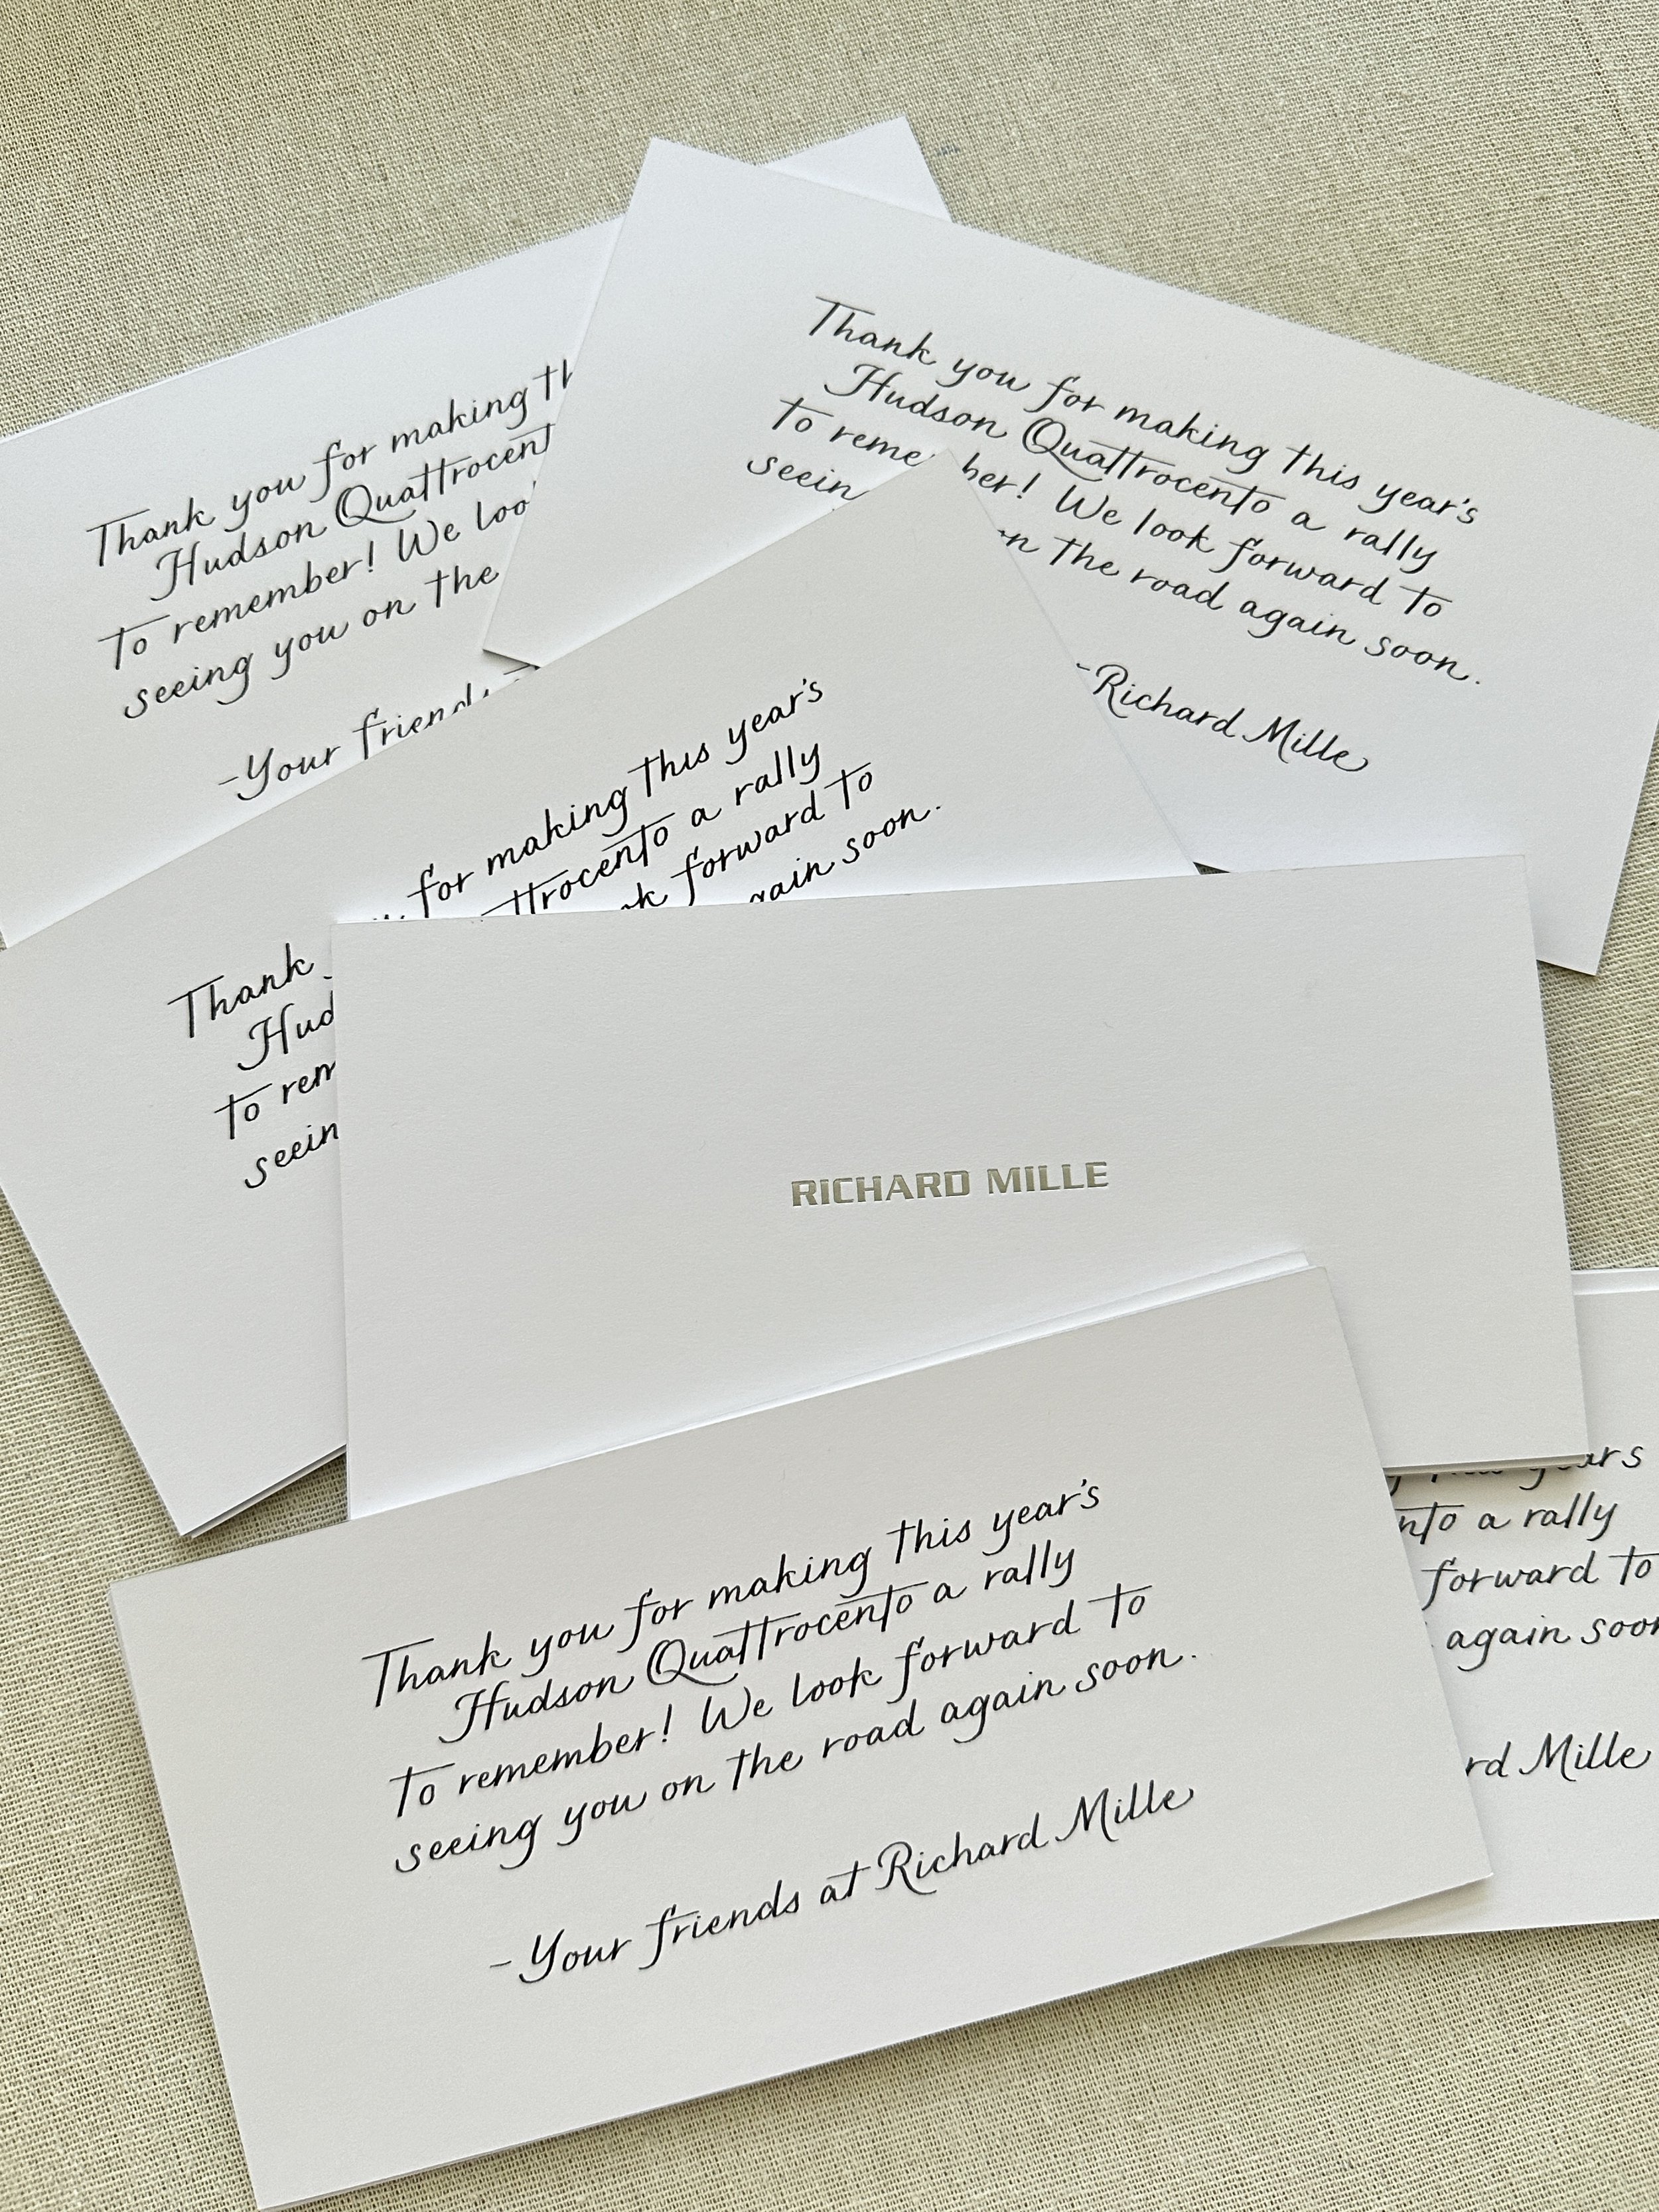 Thank you for making th
Hudson Quattrocent
to remember! We loo
seeing you on the
-Your friends
Thank you for making this year's
Hudson Quattrocento a rally
to remember! We look forward to
seein on the road again soon.
-Richard Mille
Thank for making this year's
Hud ttrocento a rally
to rem forward to
seein again soon.
RICHARD MILLE
Thank you for making this year's
Hudson Quattrocento a rally
to remember! We look forward to
seeing you on the road again soon.
-Your friends at Richard Mille
this years
nto a rally
forward to
again soon
rd Mille